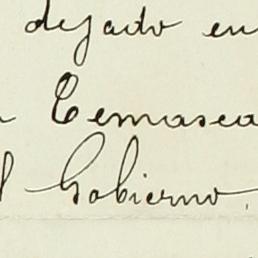 dejado en
Temasca
l Gobierno